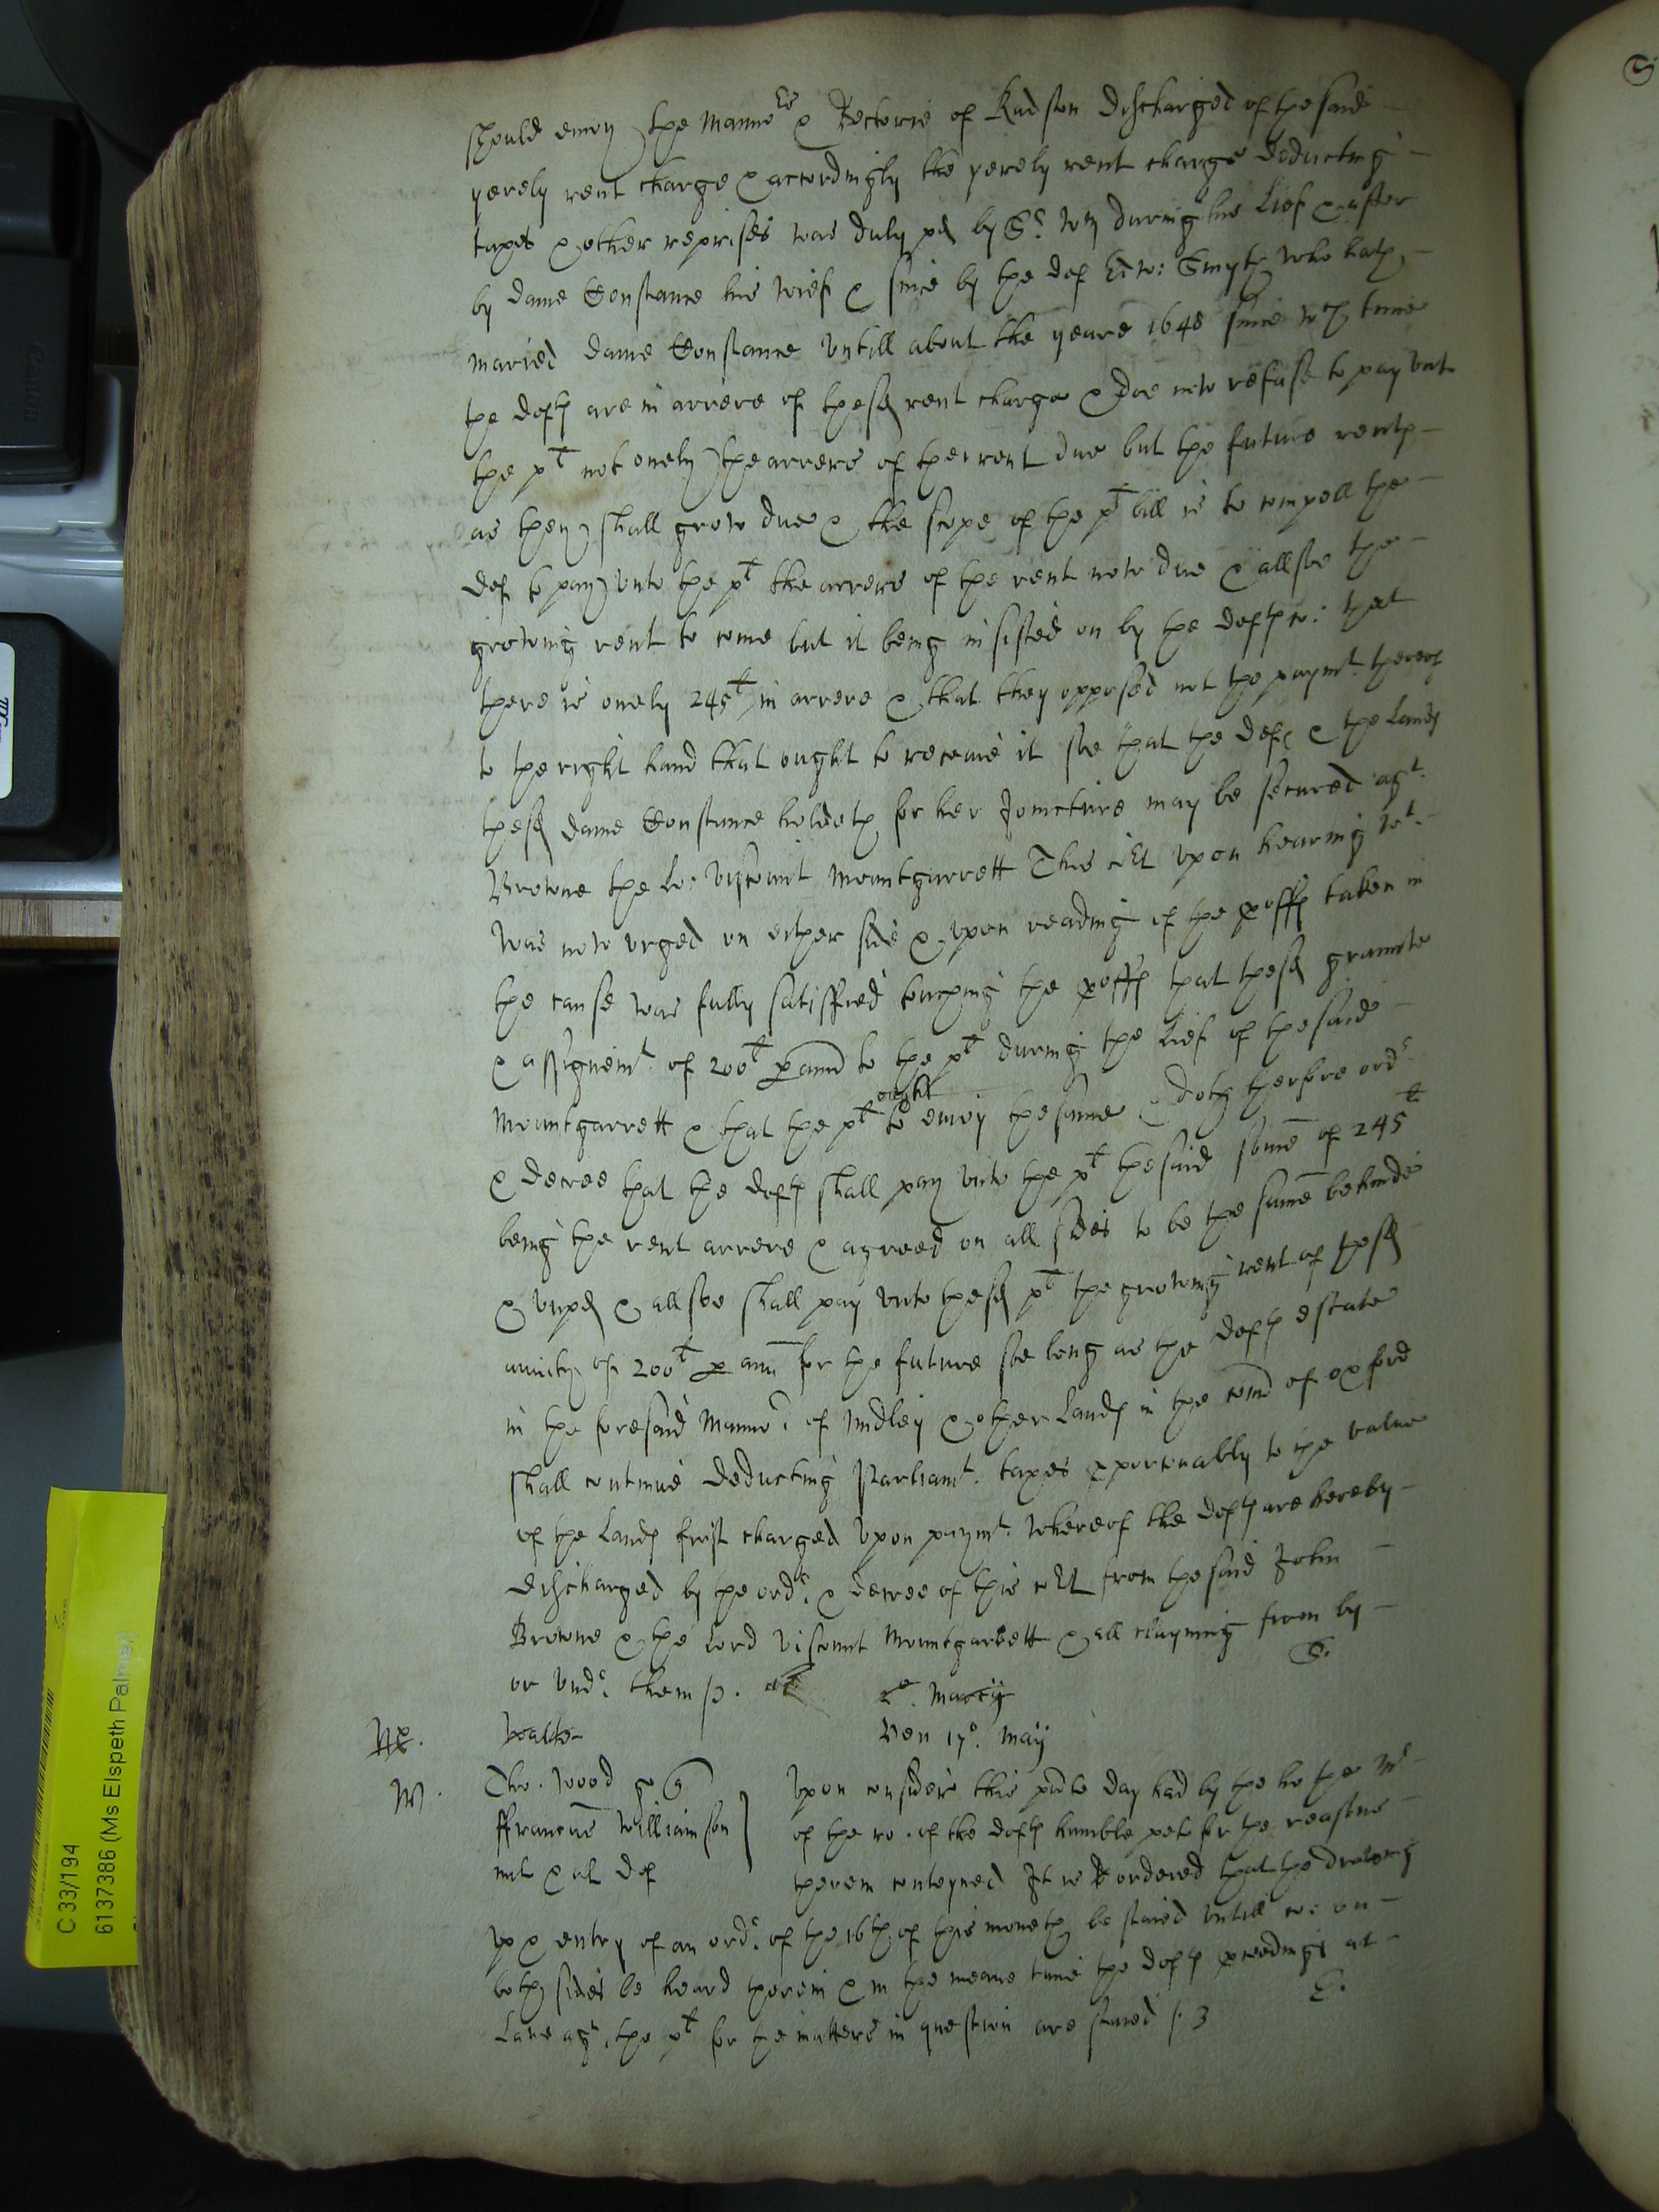 should enioy the Mannors & Rectorie of Kudson discharged of the said
yerely rent charge & accordingly the yerely rent charge deducting
taxes & other reprises was duly pd by Sr. Wm during his Lief & after
by dame Constance his wief & since by the def Edw: Smyth who hath
maried dame Constance vntill about the yeare 1648 since wch time
the defts are in arrere of the sd rent charge & doe now refuse to pay vnto
the plt not onely the arrers of the rent due but the future rents
as they shall grow due & the scope of the plt bill is to compell the
def to pay vnto the plt the arrers of the rent now due & allsoe the
growing rent to come but it being insisted on by the defts co: that
there is onely 245l in arrere & that they opposed not the paymt. thereof
to the right hand that ought to receive it soe that the def & the Lands
the sd dame Constance holdeth for her Joincture may be secured agt.
Browne the Lo: Viscount Mountgarrett This Cort vpon hearing wt.
was now vrged on either side & vpon reading of the proffs taken in
the cause was fully satisffied touching the proffs that the sd graunte
& assignemt. of 200l p ann to the plt during the Lief of the said
Mountgarrett & that the plt ought to enioy the same doth therfore ordr
& decree that the defts shall pay vnto the plt the said some of 245l
being the rent arrere & agreed on all sides to be the same behinde
& vnpd & allsoe shall pay vnto the sd plt the growing rent of the sd
anuity of 200l p ann for the future soe long as the defts estate
in the foresaid Mannor. of & other Lands in the com of oxford
shall continue deducting Parliamt. taxes pportonably to the value
of the Lands first charged vpon paymt. whereof the defts are hereby
discharged by the ordr. & decree of this Cort from the said John
Browne & the Lord Viscount Mountgarrett & all clayming from by
or vndr. them /2.
S.
Ven 17o. May
W.
Tho. Wood
ffrancis Williamson
mil & al def
Vpon consider this prnte day had by the ho the Mr
of the ro. of the defts humble peto for the reasons
therein conteyned It is ordered that the drawing
vp & entry of an ordr. of the 16th of this moneth be staied vntill co: on
both sides be heard therein & in the meane time the defts pceedings at
Lawe agt. the plt for the matters in question are staied /. 3
C 33/194
6137386 (Ms Elspeth Palmer)
Canon